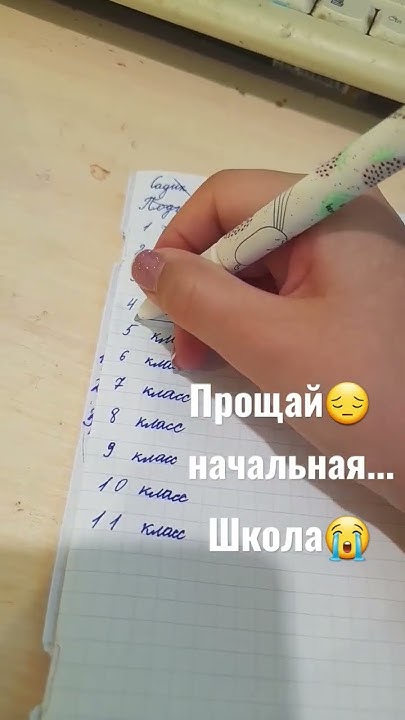 Садик
1
2
4
5
6 класс
7 класс
8 класс
9 класс
10 класс
11 класс
Прощай😔
начальная...
Школа😭